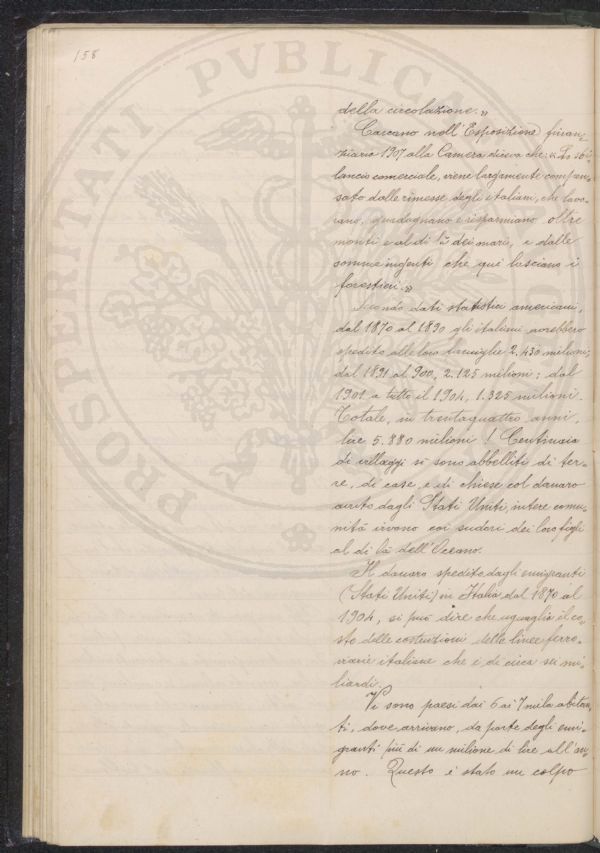 158
della circolazione.»
Carcano nell'Esposizione finan-
ziaria 1907 alla Camera diceva che: «La bi-
lancia comerciale, viene largamente compen-
sata dalle rimesse degli italiani, che lavo-
rano, guadagnano e risparmiano oltre
monti e al di là dei mari, e dalle
somme ingenti che qui lasciano i
forestieri.»
Secondo dati statistici americani,
dal 1870 al 1890 gli italiani avrebbero
spedito alle loro famiglie 2.430 milioni;
dal 1891 al 900, 2.125 milioni; dal
1901 a tutto il 1904, 1.325 milioni.
Totale, in trentaquattro anni,
lire 5.880 milioni! Centinaia
di villaggi si sono abbelliti di ter-
re, di case, e di chiese col danaro
avuto dagli Stati Uniti, intere comu-
nità vivono coi sudori dei loro figli
al di là dell'Oceano.
Il danaro spedito dagli emigranti
(Stati Uniti) in Italia dal 1870 al
1904, si può dire che uguaglia il co-
sto delle costruzioni delle linee ferro-
viarie italiane che è di circa sei mi-
liardi.
Vi sono paesi dai 6 ai 7 mila abitan-
ti, dove arrivano, da parte degli emi-
granti più di un milione di lire all'an-
no. Questo è stato un colpo
PROSPERITATI PVBLICAE